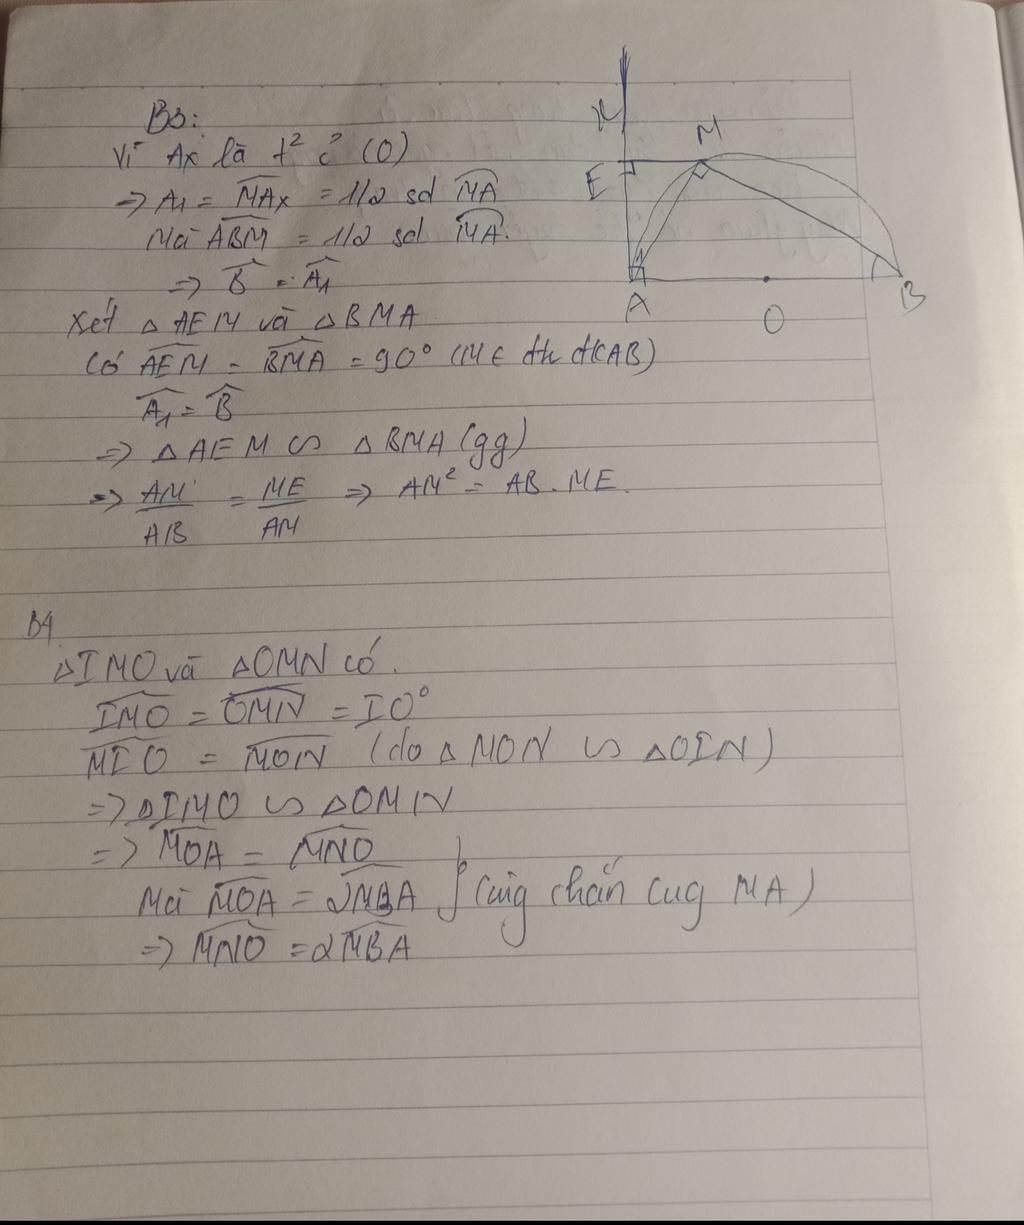 B3:
Vì Ax là t² c̉ (O)
=> A₁ = MAx = 1/2 sđ MA
Mà ABM = 1/2 sđ MA.
=> B = A₁
Xét △ AEM và △ BMA
Có AEM = BMA = 90° (M ∈ đtr đk AB)
A₁ = B
=> △ AEM ∽ △ BMA (gg)
=> AM/AB = ME/AM => AM² = AB . ME.
x
M
E
A
O
B
B4
△IMO và △OMN có.
IMO = OMN = IO°
MIO = MON (do △ MON ∽ △OIN)
=> △IMO ∽ △OMN
=> MOA = MNO
Mà MOA = 2MBA } (cùng chắn cug MA)
=> MNO = 2MBA